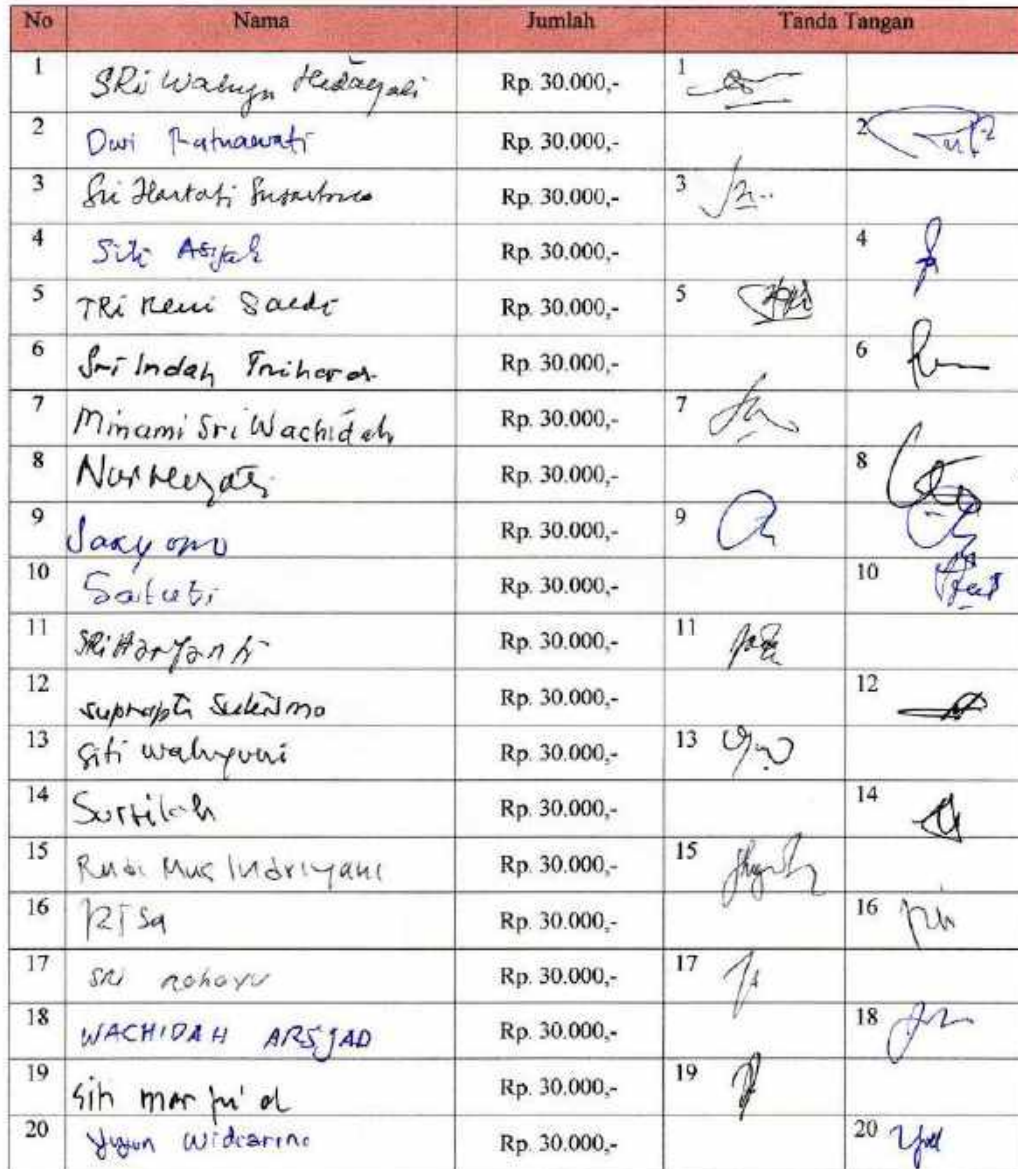 No Nama Jumlah Tanda Tangan
1 SRi Wahyu Hidayati Rp. 30.000,- 1
2 Dwi Ratnawati Rp. 30.000,- 2
3 Sri Hartati Rp. 30.000,- 3
4 Siti Asiyah Rp. 30.000,- 4
5 TRi Reni Rp. 30.000,- 5
6 Sri Indah Rp. 30.000,- 6
7 Minami Sri Wachidah Rp. 30.000,- 7
8 Nurhayati Rp. 30.000,- 8
9 Saryono Rp. 30.000,- 9
10 Rp. 30.000,- 10
11 SRi Haryanti Rp. 30.000,- 11
12 suprapti Rp. 30.000,- 12
13 Siti wahyuni Rp. 30.000,- 13
14 Rp. 30.000,- 14
15 Indriyani Rp. 30.000,- 15
16 RISa Rp. 30.000,- 16
17 SRi rahayu Rp. 30.000,- 17
18 WACHIDAH ARSJAD Rp. 30.000,- 18
19 Siti Rp. 30.000,- 19
20 Rp. 30.000,- 20